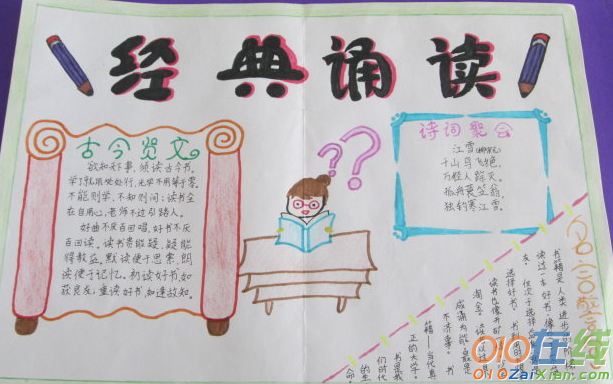 经典诵读
古今贤文
欲知天下事,须读古今书。
学了就用处处行,光学不用等于零。
不能则学,不知则问;读书全
在自用心,老师不过引路人。
好曲不厌百回唱,好书不厌
百回读。读书贵能疑,疑能
得教益。默读便于思索,朗
读便于记忆。初读好书,如
获良友;重读好书,如逢故知。
??
诗词聚会
江雪
千山鸟飞绝,
万径人踪灭。
孤舟蓑笠翁,
独钓寒江雪。
书籍是人类进步的阶梯
读过一本好书,像
友。
选择好书
读书也像开矿
淘金
或满为能
不济事。书
籍——当代真
正的大学。
书是我
们时代
的生
命
010在线
010ZaiXian.com